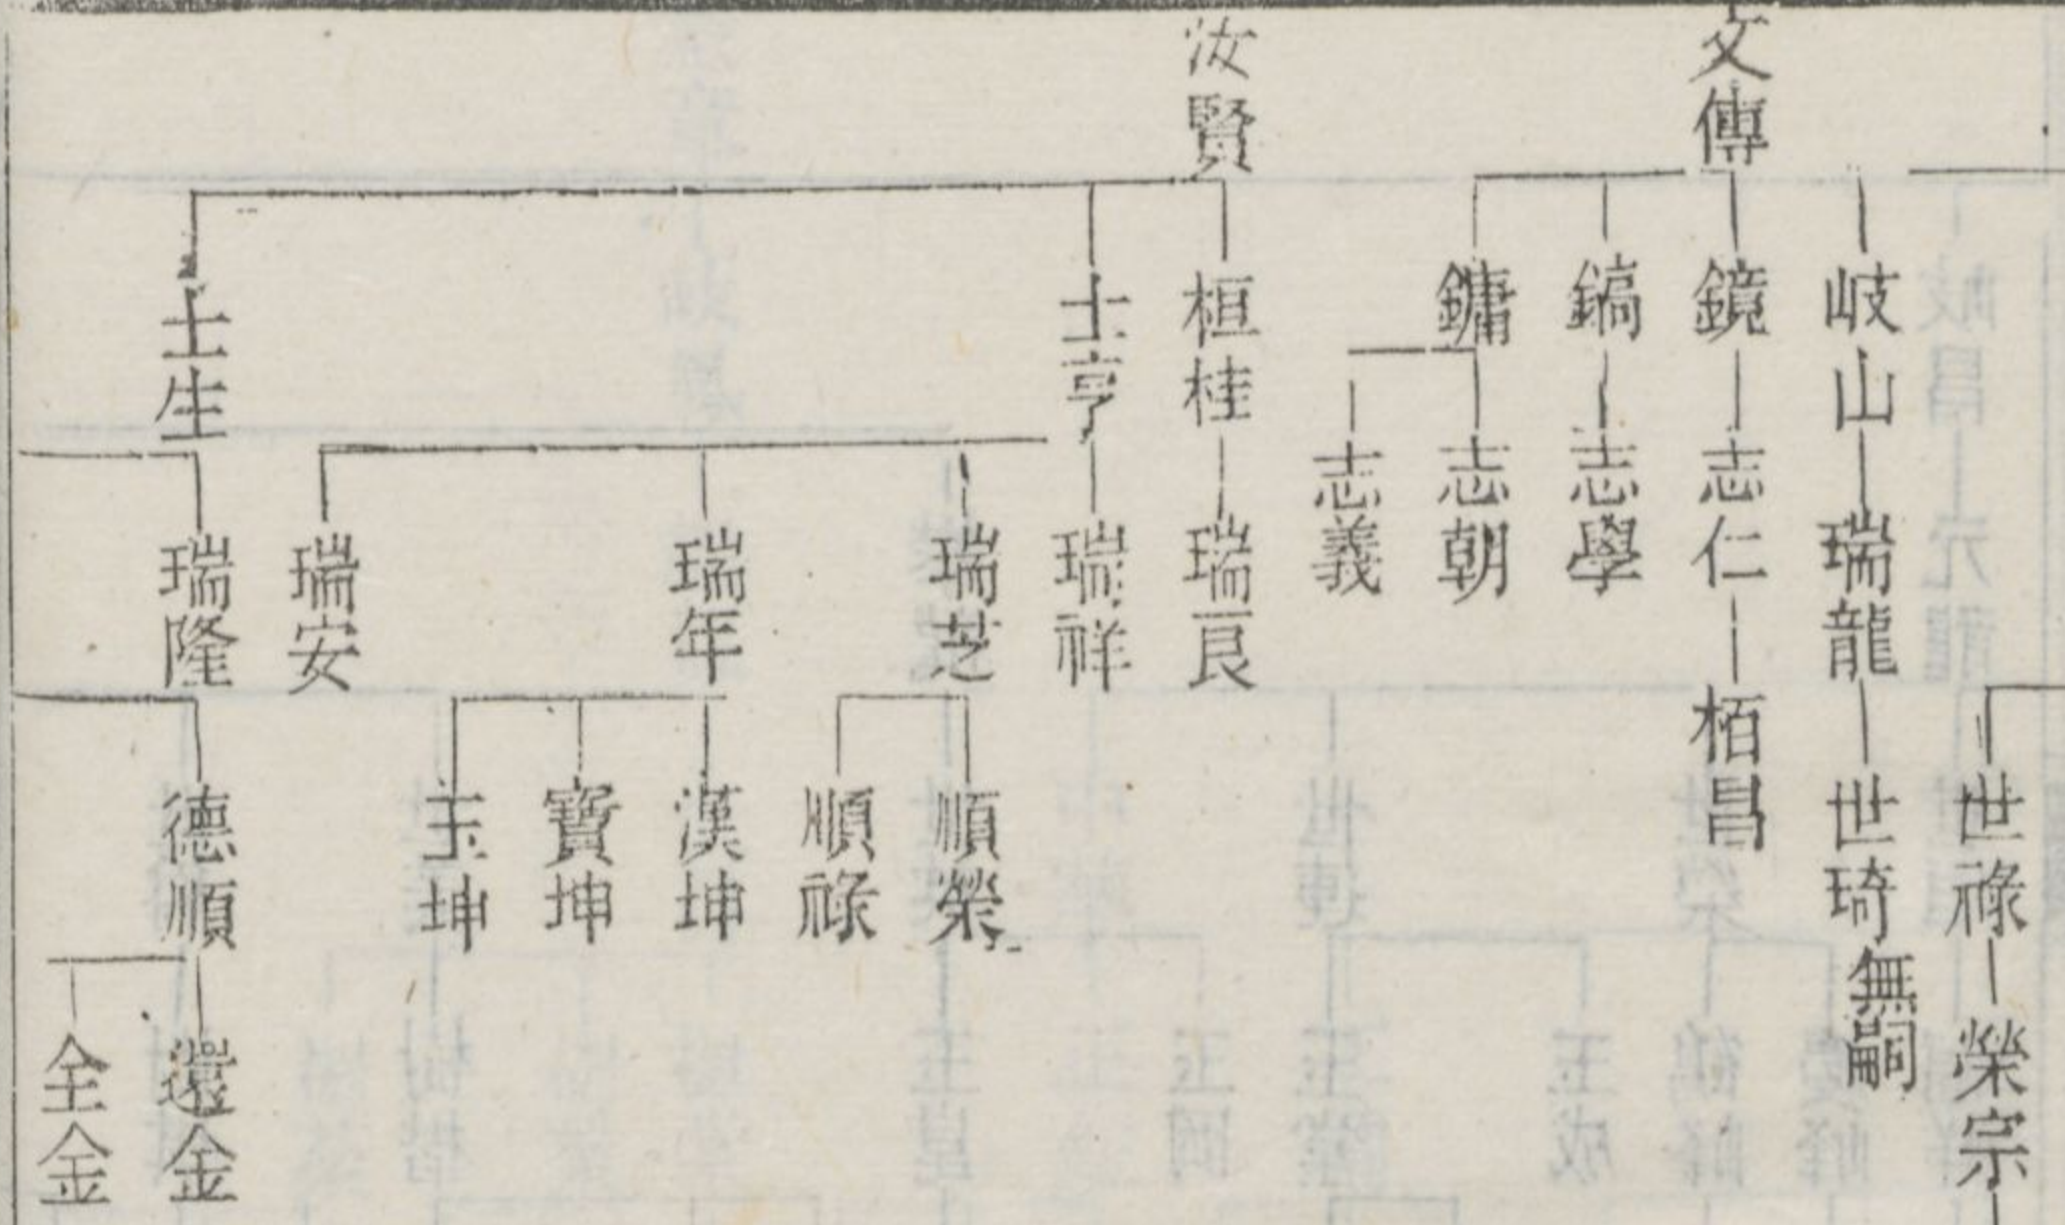 世祿
榮宗
岐山
瑞龍
世琦無嗣
文傳
鏡
志仁
栢昌
鎬
志學
鏞
志朝
志義
汝賢
桓桂
瑞良
士亨
瑞祥
瑞芝
順榮
順祿
瑞年
漢坤
寶坤
玉坤
瑞安
士生
瑞隆
德順
還金
全金